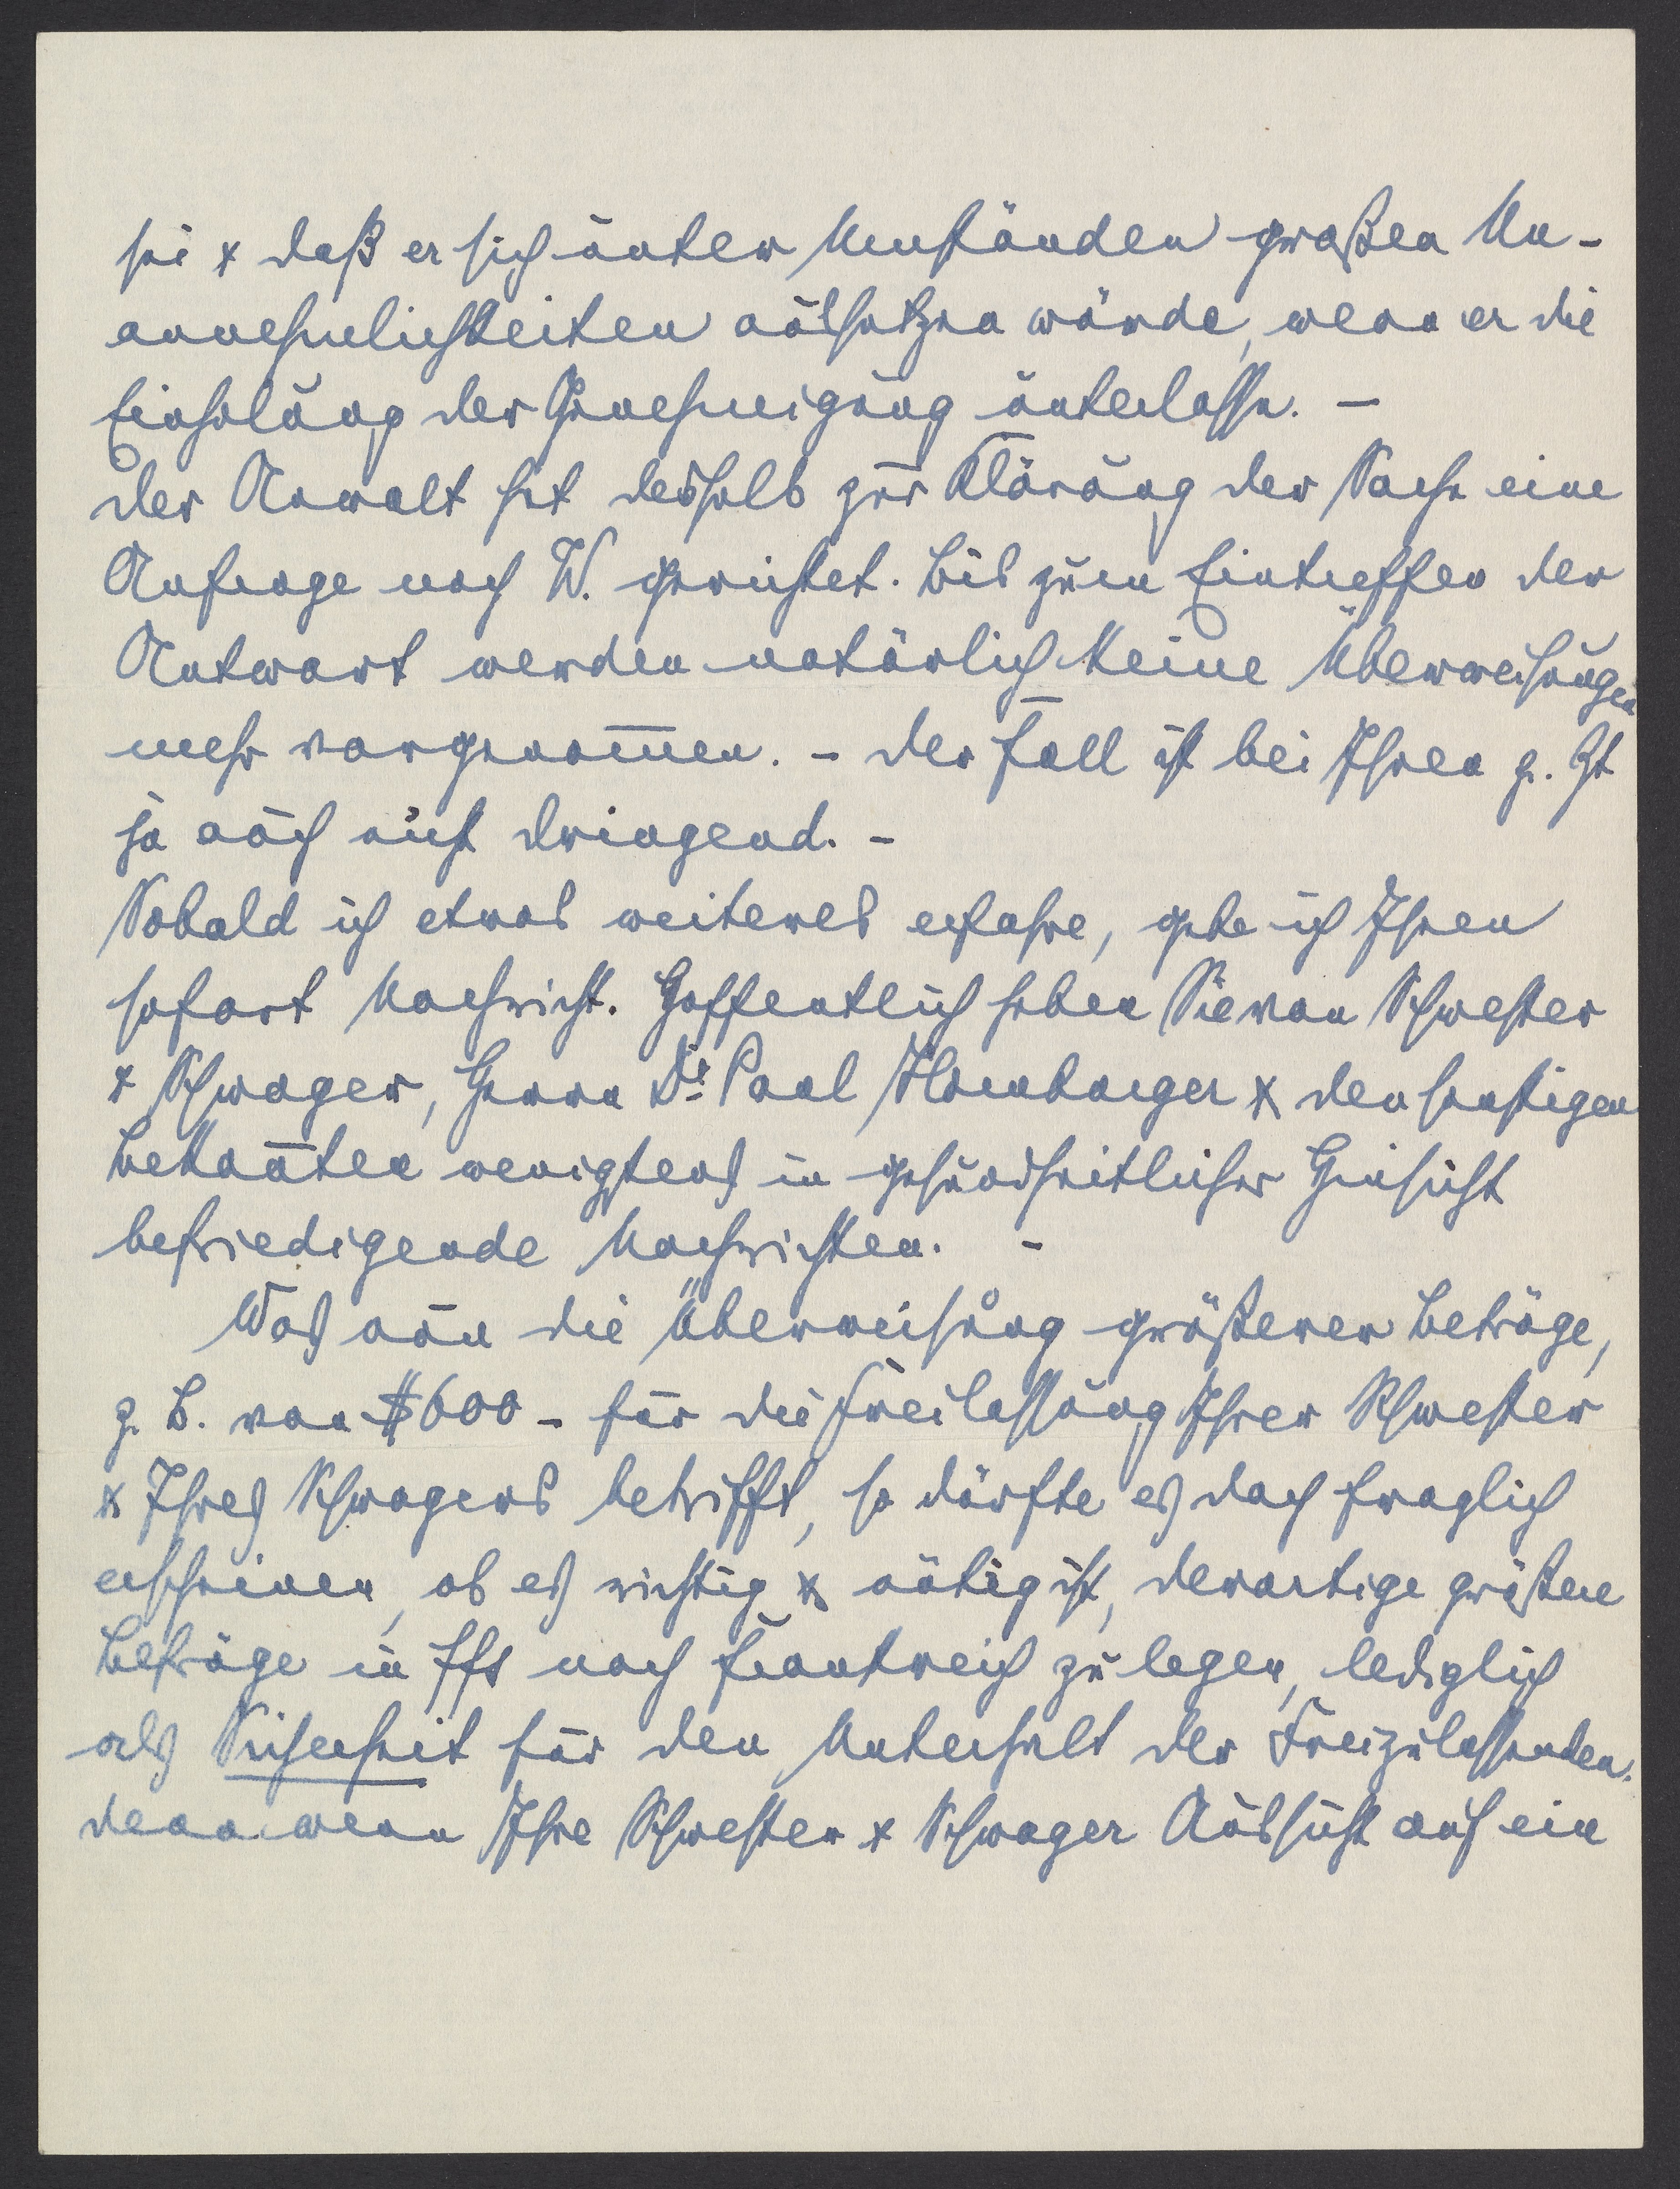 sei & daß er sich unter Umständen großen Un-
annehmlichkeiten aussetzen würde, wenn er die
Einholung der Genehmigung unterlasse. –
Der Anwalt hat deshalb zur Klärung der Sache eine
Anfrage nach W. gerichtet. Bis zum Eintreffen der
Antwort werden natürlich keine Überweisungen
mehr vorgenom̄en. – Der Fall ist bei Ihnen z. Zt
ja auch nicht dringend. –
Sobald ich etwas weiteres erfahre, gebe ich Ihnen
sofort Nachricht. Hoffentlich haben Sie von Schwester
& Schwager, Herrn Dr. Paul Homburger & den sonstigen
Bekan̄ten wenigstens in gesundheitlicher Hinsicht
befriedigende Nachrichten. –
Was nun die Überweisung größerer Beträge,
z. B. von $600 – für die Freilassung Ihrer Schwester
& Ihres Schwagers betrifft, so dürfte es doch fraglich
erscheinen, ob es richtig & nötig ist, derartige größere
Beträge in ffs nach Frankreich zu legen, lediglich
als Sicherheit für den Unterhalt der Freizulassenden.
Denn wenn Ihre Schwester & Schwager Aussicht auf ein